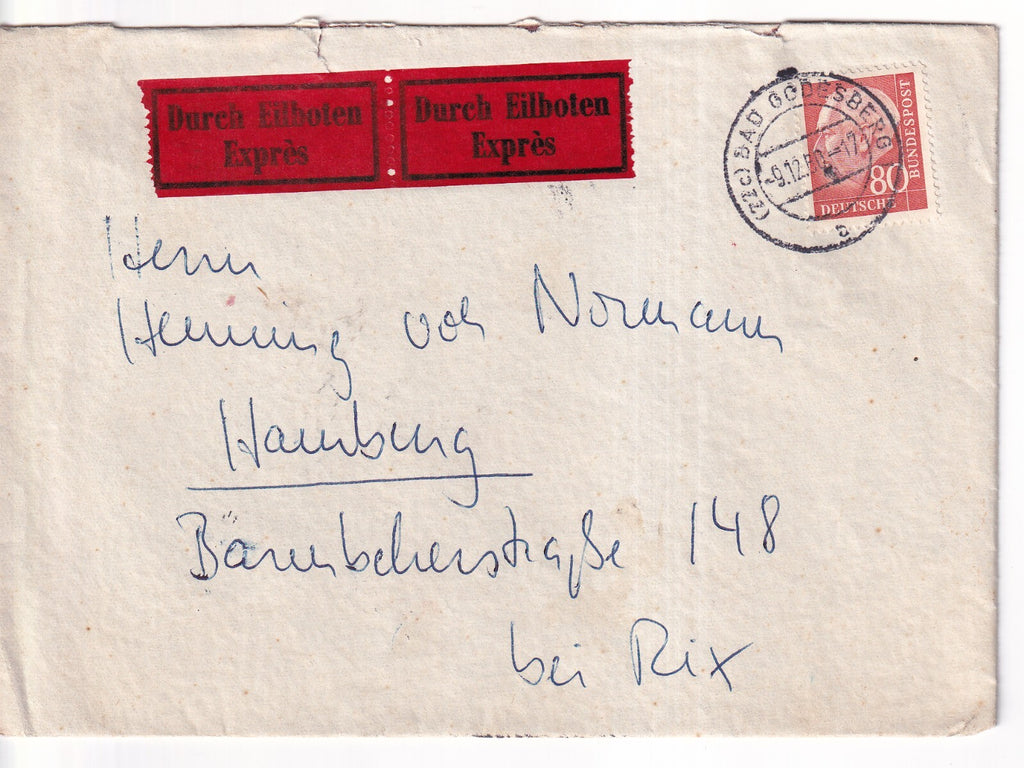 Durch Eilboten
Exprès
Durch Eilboten
Exprès
(22c) BAD GODESBERG
-9.12.
c
80
DEUTSCHE
BUNDESPOST
Herrn
Henning von Normann
Hamburg
148
bei Rix